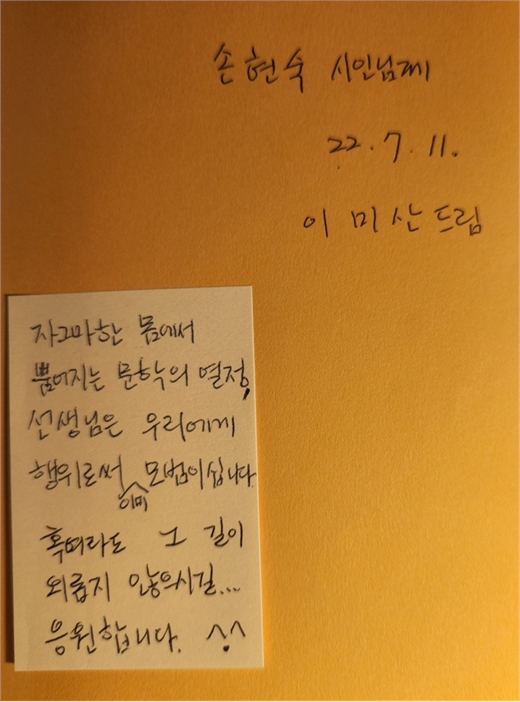 손현숙 시인님께
22.7.11.
이미산드림
자그마한 몸에서
뿜어지는 문학의 열정,
선생님은 우리에게
행위로써 이미 모범이십니다.
혹여라도 그 길이
외롭지 않으시길...
응원합니다. ^.^